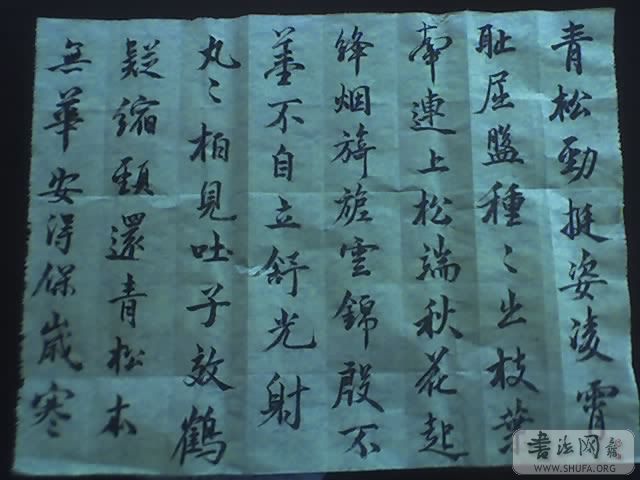 青松勁挺姿凌霄
耻屈盤種々出枝葉
牽連上松端秋花起
絳烟旖旎雲錦殷不
羞不自立舒光射
丸々柏見吐子效鶴
疑縮頸還青松本
無華安得保歲寒
书法网
WWW.SHUFA.ORG